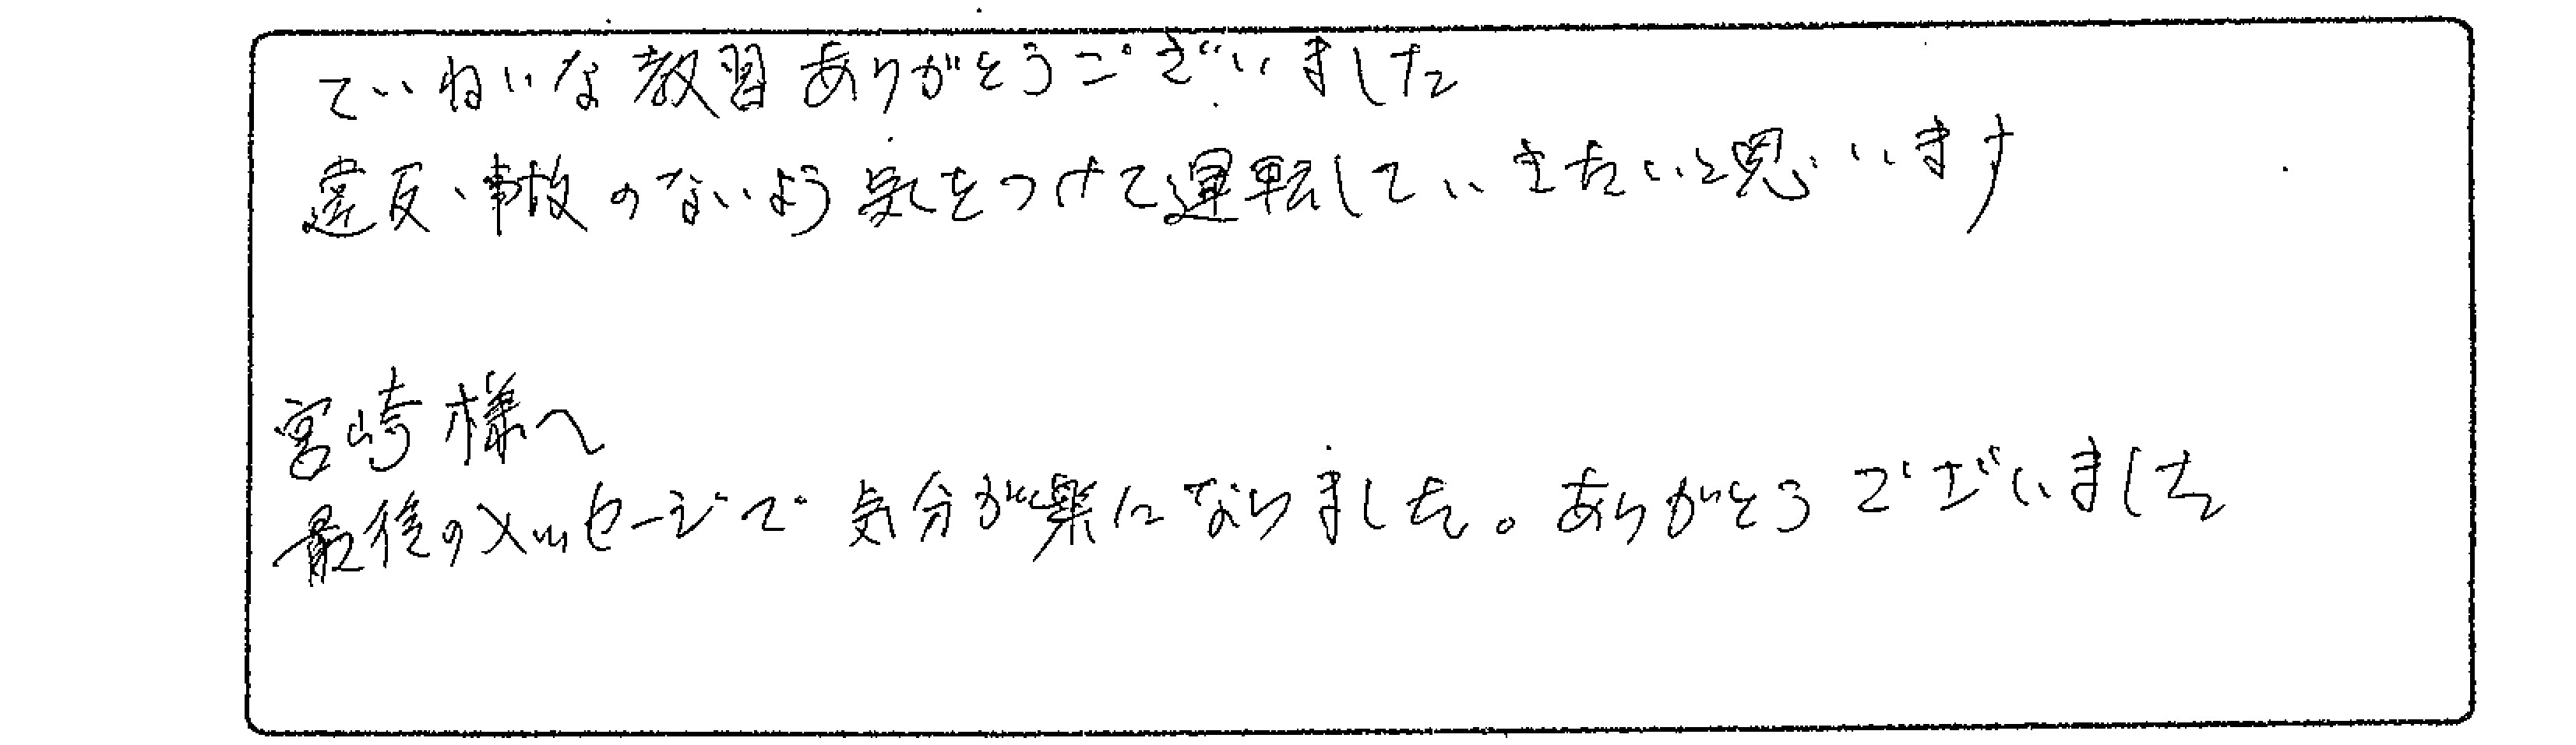 ていねいな教習ありがとうございました
違反、事故のないよう気をつけて運転していきたいと思います
宮崎様へ
最後のメッセージで気分が楽になりました。ありがとうございました